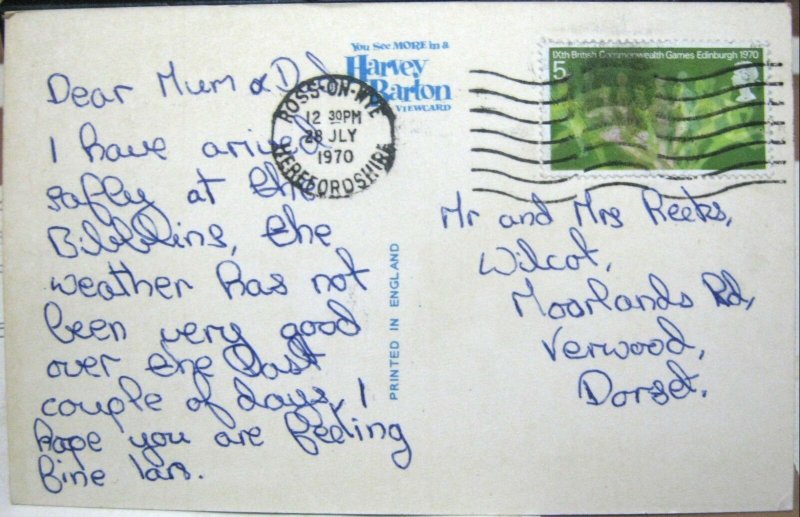 Dear Mum & Dad
I have arived
safly at the
Bibblins, the
weather has not
been very good
over the last
couple of days, I
hope you are feeling
fine Ian.
You See MORE in a
Harvey
Barton
VIEWCARD
ROSS-ON-WYE
12 30PM
28 JLY
1970
HEREFORDSHIRE
PRINTED IN ENGLAND
IXth British Commonwealth Games Edinburgh 1970
5
Mr and Mrs Reeks,
Wilcot,
Moorlands Rd,
Verwood,
Dorset.